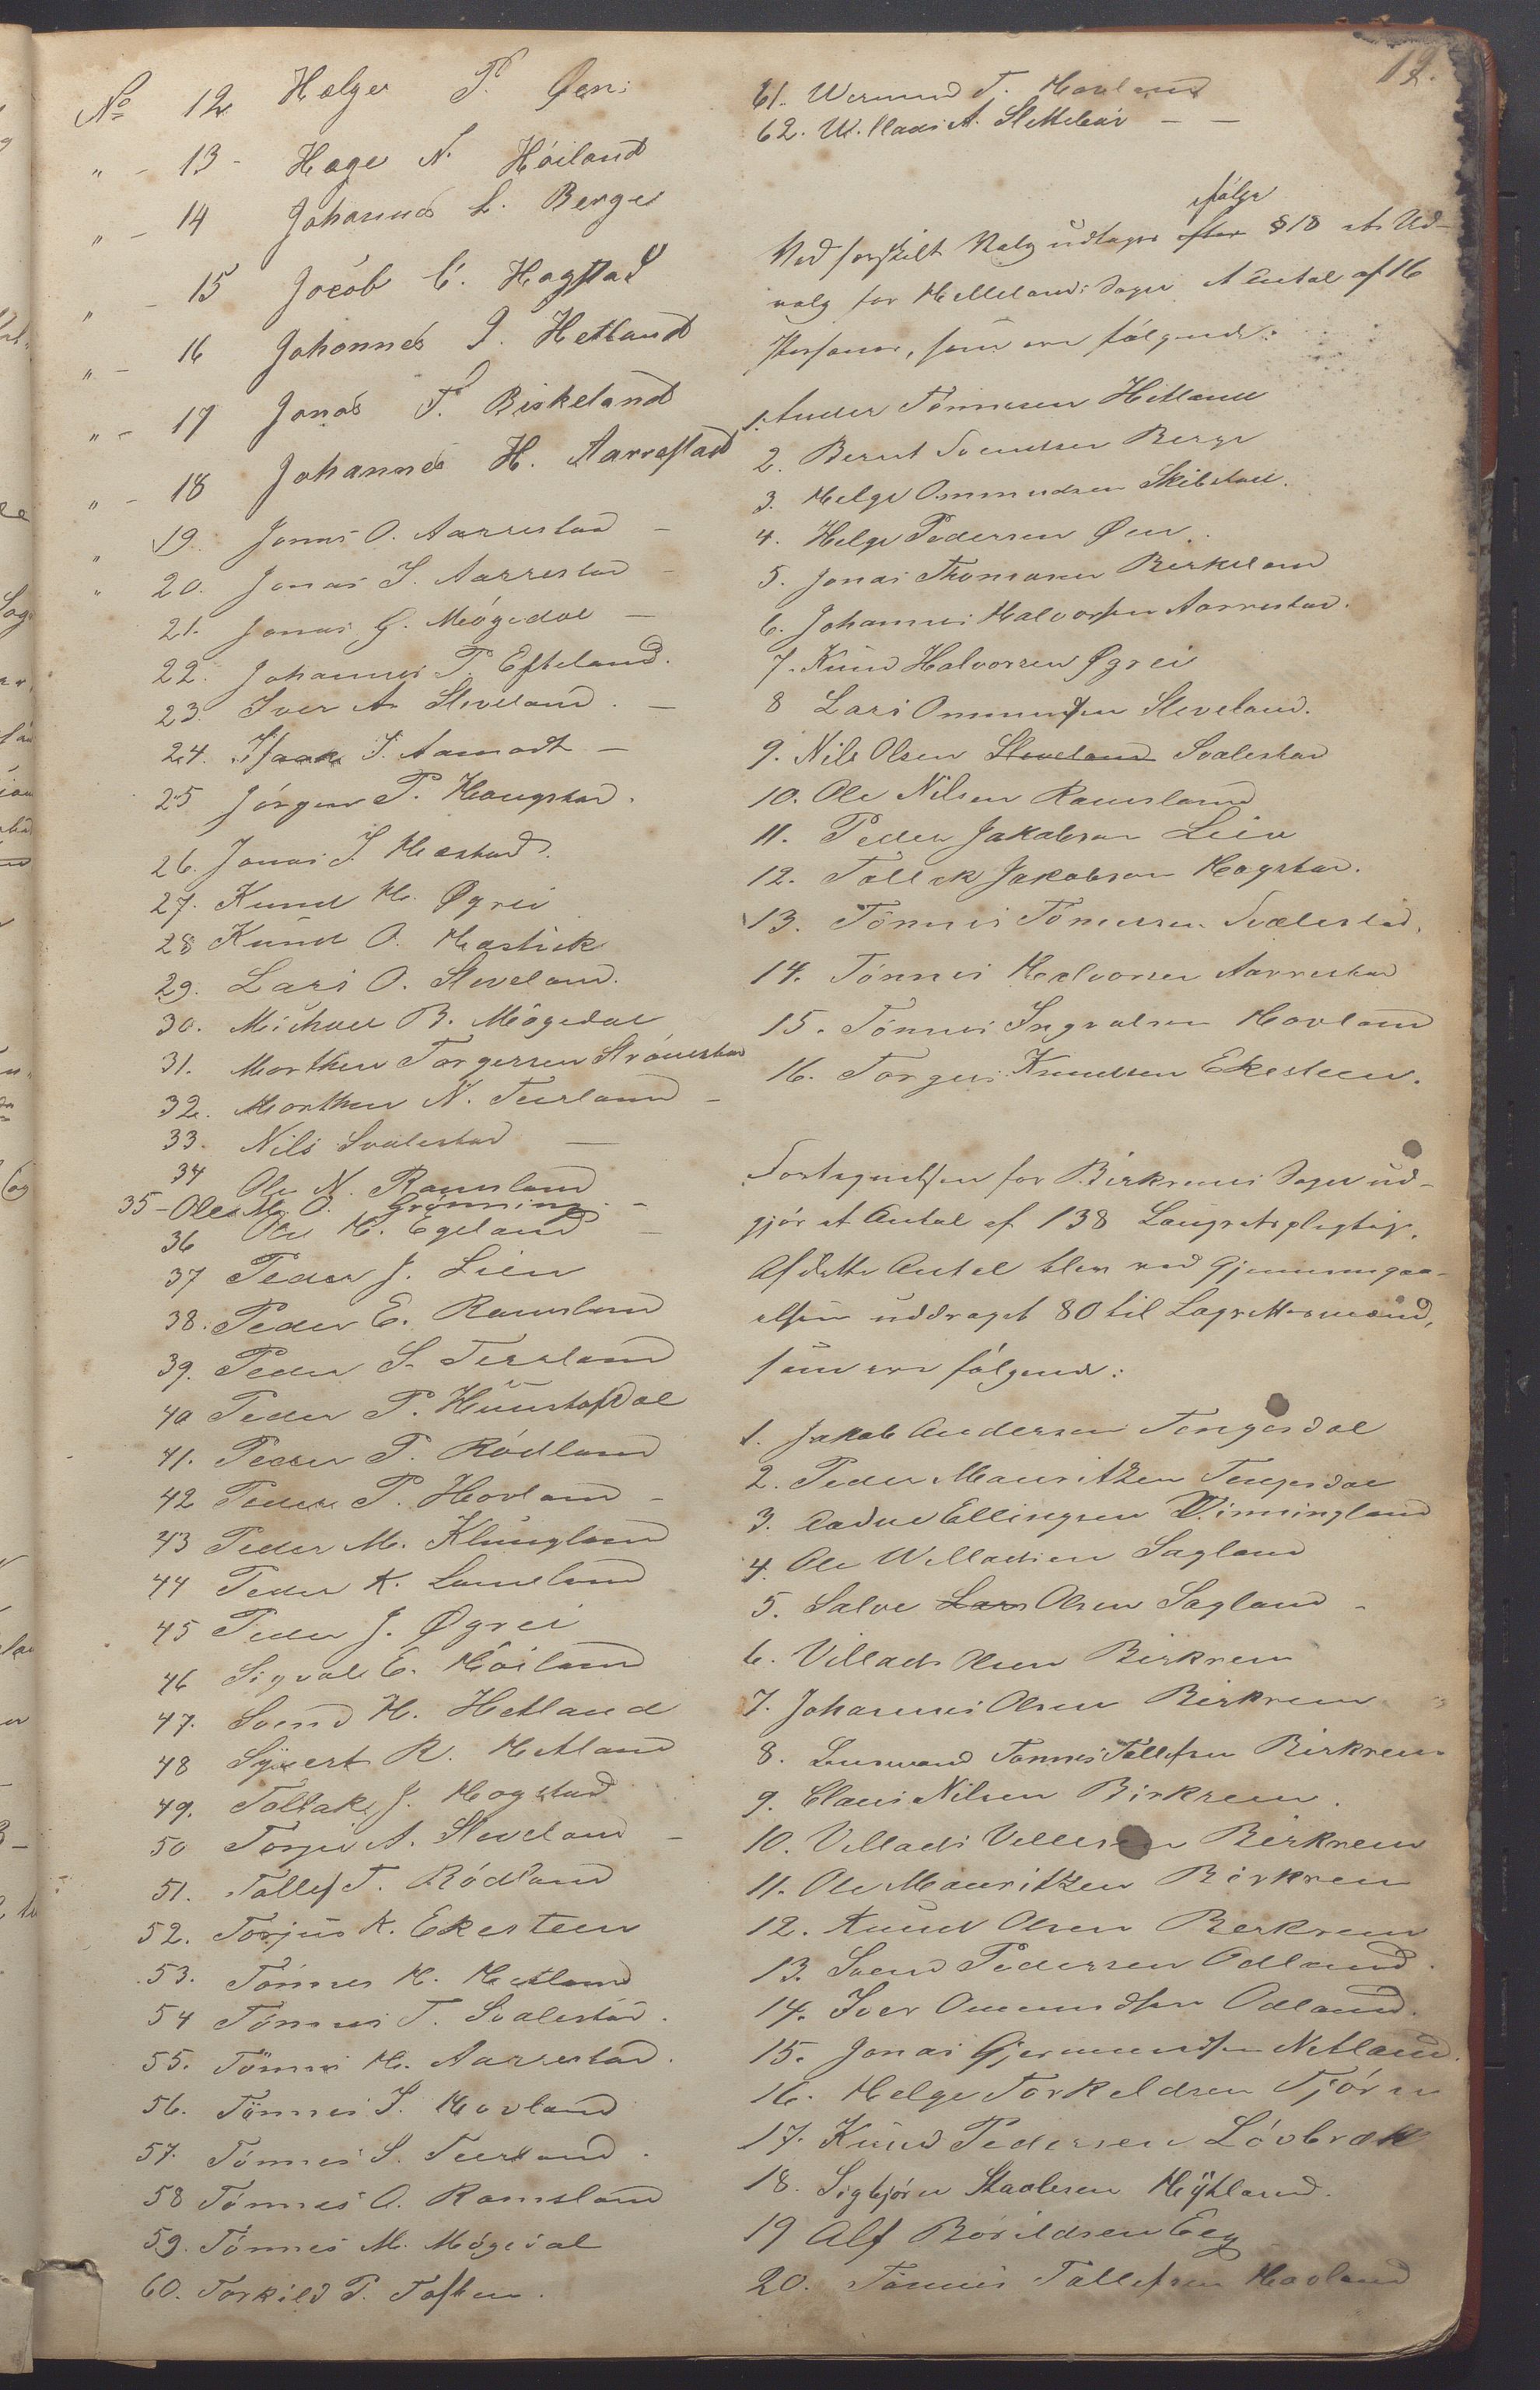 12.
No 12 Helge P. Øen
" - 13 - Hage N. Höiland
" - 14 Johannes L. Berge
" - 15 Jocob C. Hogstad
" - 16 Johonnes J. Hetland
" - 17 Jonas T. Birkeland
" - 18 Johannes H. Aarrestad
" 19. Jonas O. Aarrestad -
" 20. Jonas I. Aarrestad -
21. Jonas G. Mögedal -
22. Johannes P. Efteland.
23. Iver A. Sleveland. -
24. Isaak I. Aamodt -
25 Jörgen P. Haugstad.
26. Jonas I. Mæstad.
27. Knud H. Øgrei
28 Knud O. Hæstick
29. Lars O. Sleveland.
30. Michael B. Mögedal
31. Morthen Torgersen Strömstad
32. Morthen N. Terland -
33. Nils Svalestad -
34 Ole N. Ramsland
35 - Ole M. O. Grönning -
36 Ole H. Egeland -
37 Peder J. Lien
38. Peder E. Ramsland
39. Peder S. Terland
40 Peder P. Hunstafdal
41. Peder P. Rödland
42 Peder P. Hovland -
43 Peder M. Klungland
44 Peder K. Lameland
45 Peder J. Øgrei
46 Sigvald E. Höiland
47. Svend H. Hetland
48 Syvert R. Hetland
49. Tollak J. Hogstad
50 Torger A. Sleveland -
51. Tollef T. Rödland
52. Torjus K. Ekesteen
53. Tönnes H. Hetland
54 Tönnes T. Svalestad.
55. Tönnes H. Aarrestad.
56. Tönnes I. Hovland
57. Tönnes S. Terland.
58 Tönnes A. Ramsland
59. Tönnes M. Mögedal
60. Torkild P. Toften.
61. Wermund T. Hovland
62. Willads A. Slettebö - -
Ved særskilt Valg udtages efter ifölge § 18 et Ud-
valg for Hellelands Sogn et Antal af 16
Personer, som ere fölgende:
1. Ander Tönnesen Hetland
2. Bernt Svendsen Berge
3. Helge Ommundsen Skibstad.
4. Helge Pedersen Øen.
5. Jonas Thomasen Birkeland
6. Johannes Halvorsen Aarrestad.
7. Knud Halvorsen Øgrei
8 Lars Ommundsen Sleveland.
9. Nils Olsen Sleveland Svalestad
10. Ole Nilsen Ramsland
11. Peder Jakobsen Lien
12. Tollak Jakobsen Hogstad.
13. Tönnes Tönnessen Svalestad.
14. Tönnes Halvorsen Aarrestad
15. Tönnes Ingvalsen Hovland
16. Torger Knudsen Ekesteen.
Fortegnelsen for Birkrems Sogn ud-
gjör et Antal af 138 Laugretspligtige.
Af dette Antal blev ved Gjennemgaa-
elsen uddraget 80 til Lagrettesmænd,
som ere fölgende:
1. Jakob Andersen Tengesdal
2. Peder Mauritzen Tengesdal
3. Ellingsen Vinningland
4. Ole Willadsen Sagland
5. Salve Lars Olsen Sagland -
6. Villads Olsen Birkrem
7. Johannes Olsen Birkrem
8. Lensmand Tönnes Tollefsen Birkrem
9. Claus Nilsen Birkrem.
10. Villads Villadsen Birkrem
11. Ole Mauritzen Birkrem
12. Knud Olsen Berkrem
13. Svend Pedersen Odland.
14. Iver Ommundsen Odland.
15. Jonas Gjermundsen Netland.
16. Helge Torkeldsen Tjörn
17. Knud Pedersen Lövbræk
18. Sigbjörn Staalesen Hytland.
19 Alf Borildsen Eeg
20. Tönnes Tollefsen Hovland